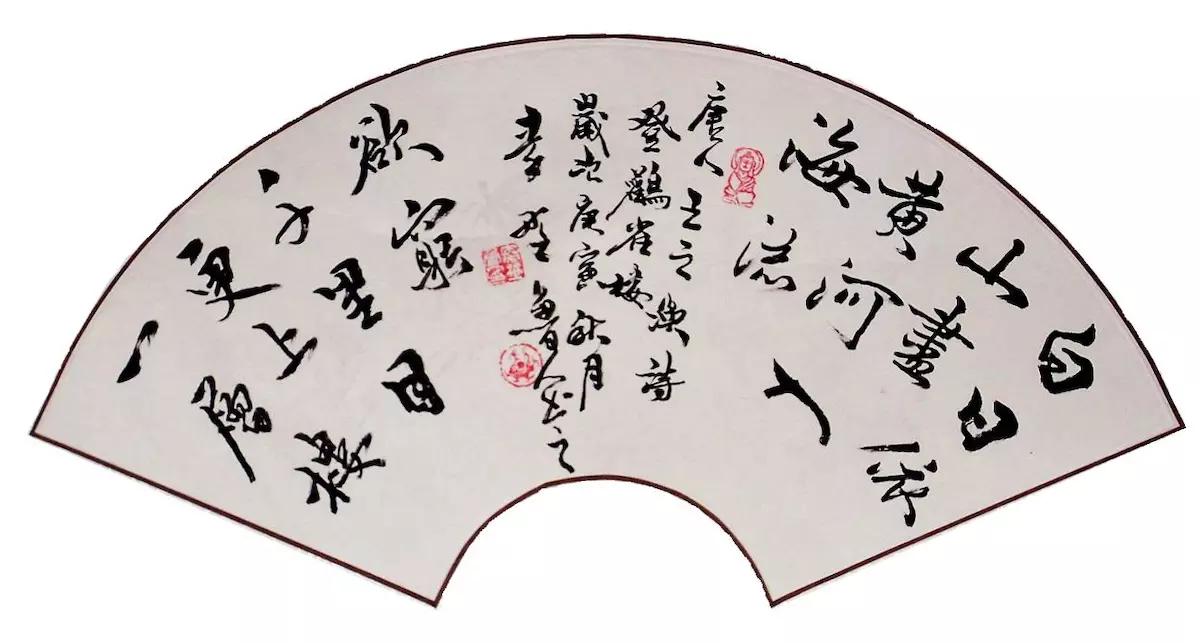 白日依
山盡
黃河入
海流
唐人王之渙詩
登鸛雀樓
歲次庚寅秋月
李野魯人書之
欲窮
千里目
更上
一層樓